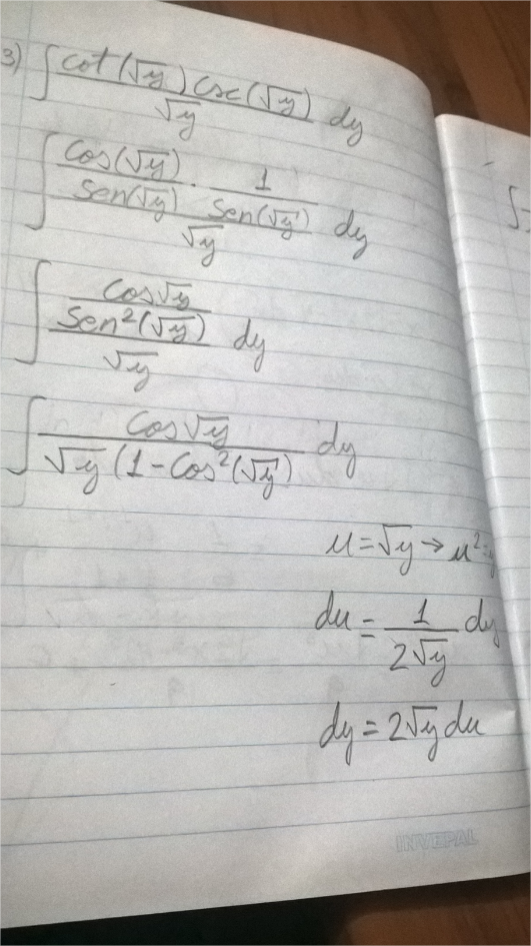 3) ∫ cot(√y) csc(√y) / √y dy
∫ (cos(√y) / Sen(√y) · 1 / Sen(√y)) / √y dy
∫ (cos√y / Sen²(√y)) / √y dy
∫ cos√y / √y (1 - Cos²(√y) dy
u = √y → u² =
du = 1 / 2√y dy
dy = 2√y du
INVEPAL